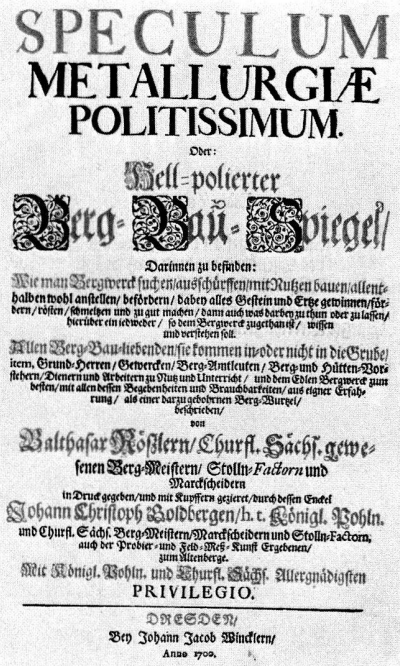 SPECULUM
METALLURGIÆ
POLITISSIMUM.
Oder:
Hell-polierter
Berg-Bau-Spiegel/
Darinnen zu befinden:
Wie man Bergwerck suchen/ausschürffen/mit Nutzen bauen/allent-
halben wohl anstellen/ befördern/ dabey alles Gestein und Ertze gewinnen/för-
dern/rösten/schmeltzen und zu gut machen/ dann auch was darbey zu thun oder zu lassen/
hierüber ein iedweder/ so dem Bergwerck zugethan ist/ wissen
und verstehen soll.
Allen Berg-Bau-liebenden/sie kommen in-oder nicht in die Grube/
item, Grund-Herren/Gewercken/Berg-Amtleuten/ Berg-und Hütten-Vor-
stehern/Dienern und Arbeitern zu Nutz und Unterricht/ und dem Edlen Bergwerck zum
besten/mit allen dessen Begebenheiten und Brauchbarkeiten/ aus eigner Erfah-
rung/ als einer darzu gebohrnen Berg-Wurtzel/
beschrieben/
von
Balthasar Rößlern/Churfl. Sächs. gewe-
senen Berg-Meistern/ Stolln-Factorn und
Marckscheidern
in Druck gegeben/und mit Kupffern gezieret/durch dessen Enckel
Johann Christoph Goldbergen/h. t. Königl. Pohln.
und Churfl. Sächs. Berg-Meistern/Marckscheidern und Stolln-Factorn,
auch der Probier- und Feld-Meß-Kunst Ergebenen/
zum Altenberge.
Mit Königl. Pohln. und Churfl. Sächs. Allergnädigsten
PRIVILEGIO.
DRESDEN/
Bey Johann Jacob Wincklern/
Anno 1700.